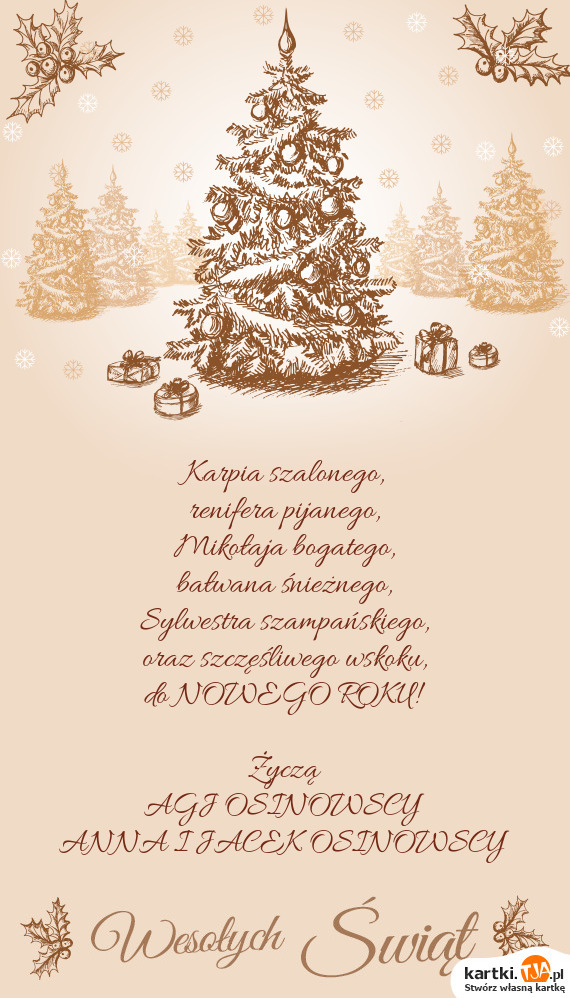 Karpia szalonego,
renifera pijanego,
Mikołaja bogatego,
bałwana śnieżnego,
Sylwestra szampańskiego,
oraz szczęśliwego wskoku,
do NOWEGO ROKU!
Życzą
AGJ OSINOWSCY
ANNA I JACEK OSINOWSCY
Wesołych Świąt
kartki.TJA.pl
Stwórz własną kartkę